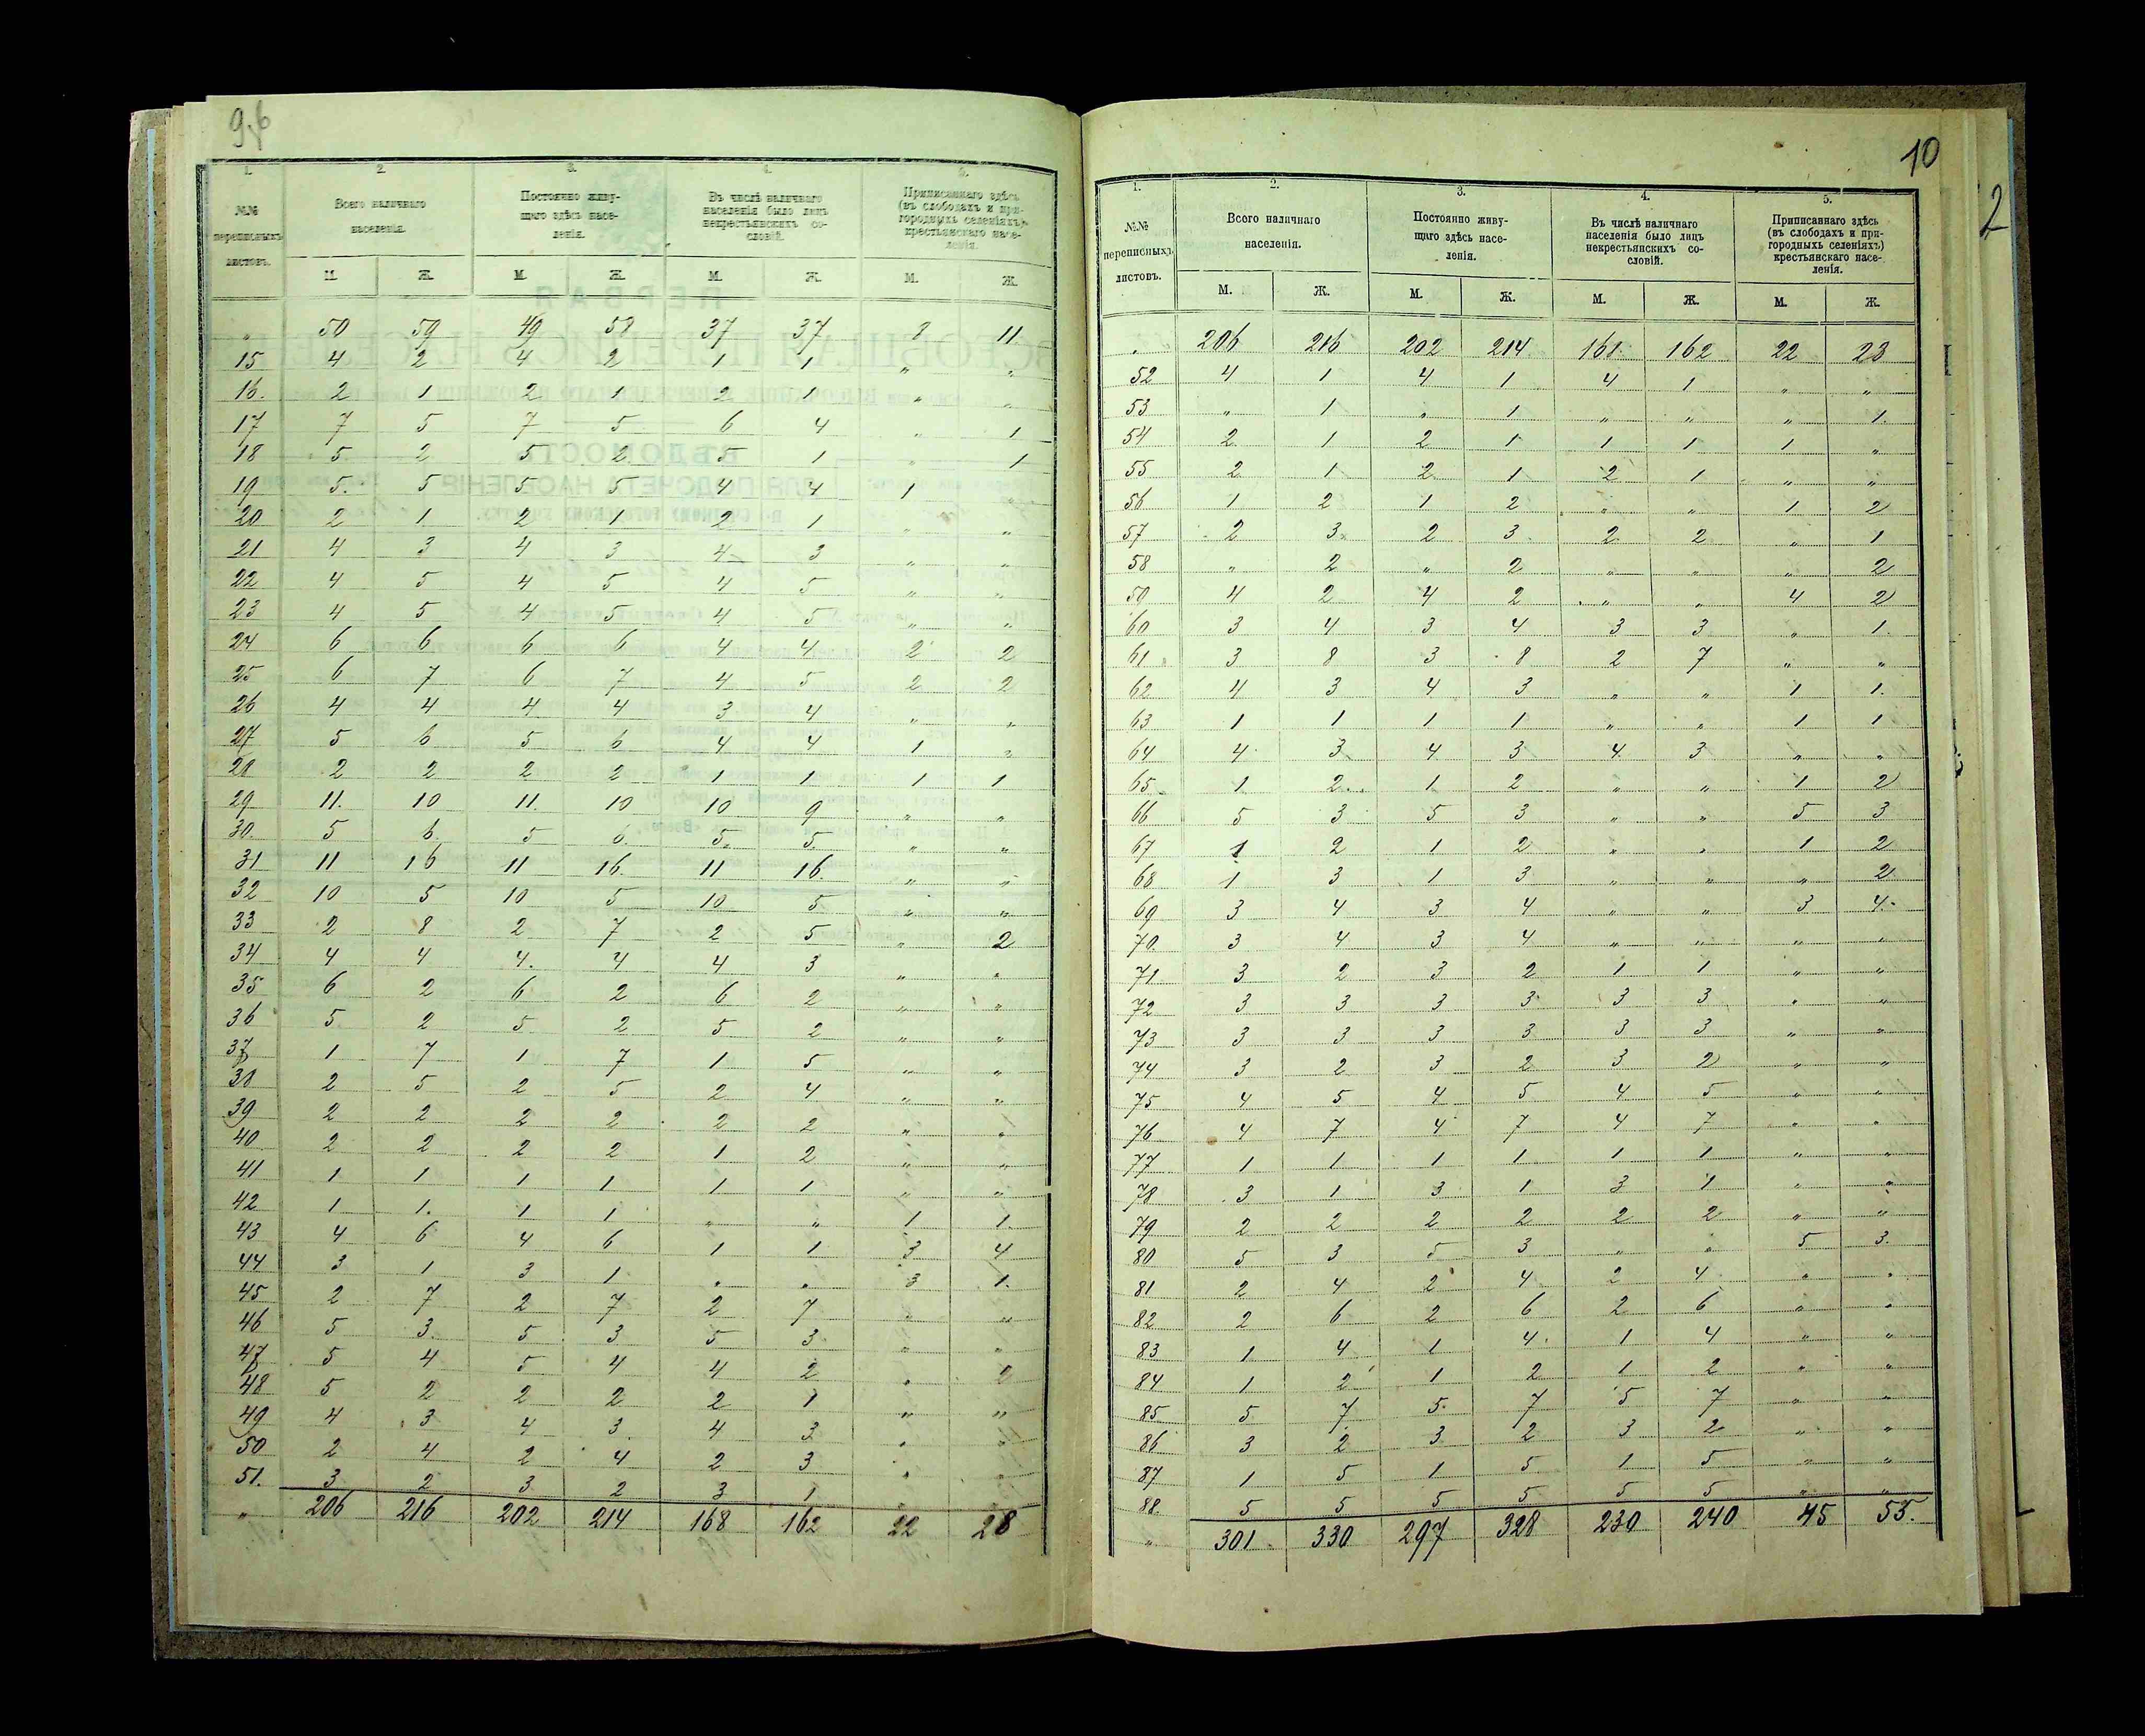 9б
1. 2. 3. 4. 5.
№№ переписныхъ листовъ. Всего наличнаго населенія. Постоянно живущаго здѣсь населенія. Въ числѣ наличнаго населенія было лицъ некрестьянскихъ сословій. Приписаннаго здѣсь (въ слободахъ и пригородныхъ селеніяхъ) крестьянскаго населенія.
М. Ж. М. Ж. М. Ж. М. Ж.
" 50 59 49 58 37 37 8 11
15 4 2 4 2 1 1 " "
16. 2 1 2 1 2 1 " "
17 7 5 7 5 6 4 " 1
18 5 2 5 2 5 1 " 1
19 5. 5 5 5 4 4 1 "
20 2 1 2 1 2 1 " "
21 4 3 4 3 4 3 " "
22 4 5 4 5 4 5 " "
23 4 5 4 5 4 5 " "
24 6 6 6 6 4 4 2 2
25 6 7 6 7 4 5 2 2
26 4 4 4 4 3 4 " "
27 5 6 5 6 4 4 1 "
28 2 2 2 2 1 1 1 1
29 11. 10 11. 10 10 9 " "
30. 5 6. 5 6. 5. 5. " "
31 11 16 11 16. 11 16. " "
32 10 5 10 5 10 5 " "
33 2 8 2 7 2 5 " 2
34 4 4 4. 4 4 3 " "
35 6 2 6 2 6 2 " "
36 5 2 5 2 5 2 " "
37 1 7 1 7 1 5 " "
38 2 5 2 5 2 4 " "
39 2 2 2 2 2 2 " "
40 2 2 2 2 1 2 " "
41 1 1 1 1 1 1 " "
42 1 1. 1 1 " " 1 1.
43 4 6 4 6 1 1 3 4
44 3 1 3 1 " " 3 1.
45 2 7 2 7 2 7 " "
46 5 3. 5 3 5 3 " "
47 5 4 5 4 4 2 " 2
48 5 2 2 2 2 1 " "
49 4 3 4 3. 4 3 " "
50 2 4 2 4 2 3 " "
51. 3 2 3 2 3 1 " "
" 206 216 202 214 168 162 22 28
10
1. 2. 3. 4. 5.
№№ переписныхъ листовъ. Всего наличнаго населенія. Постоянно живущаго здѣсь населенія. Въ числѣ наличнаго населенія было лицъ некрестьянскихъ сословій. Приписаннаго здѣсь (въ слободахъ и пригородныхъ селеніяхъ) крестьянскаго населенія.
М. Ж. М. Ж. М. Ж. М. Ж.
" 206 216 202 214 161 162 22 28
52 4 1 4 1 4 1 " "
53 " 1 " 1 " " " 1.
54 2 1 2 1 1 1 1 "
55 2 1 2 1 2 1 " "
56 1 2 1 2 " " 1 2
57 2 3 2 3 2 2 " 1
58 " 2 " 2 " " " 2
59 4 2 4 2 " " 4 2
60 3 4 3 4 3 3 " 1.
61 3 8 3 8 2 7 " "
62 4 3 4 3 " " 1 1.
63 1 1 1 1 " " 1 1
64 4 3 4 3 4 3 " "
65 1 2 1 2 " " 1 2
66 5 3 5 3 " " 5 3
67 1 2 1 2 " " 1 2
68 1 3 1 3 " " " 2
69 3 4 3 4 " " 3 4.
70. 3 4 3 4 " " " "
71 3 2 3 2 1 1 " "
72 3 3 3 3 3 3 " "
73 3 3 3 3 3 3 " "
74 3 2 3 2 3 2 " "
75 4 5 4 5 4 5 " "
76 4 7 4 7 4 7 " "
77 1 1 1 1 1 1 " "
78 3 1 3 1 3 1 " "
79 2 2 2 2 2 2 " "
80 5 3 5 3 " " 5 3.
81 2 4 2 4 2 4 " "
82 2 6 2 6 2 6 " "
83 1 4 1 4 1 4 " "
84 1 2 1 2 1 2 " "
85 5 7 5 7 5 7 " "
86 3 2 3 2 3 2 " "
87 1 5 1 5 1 5 " "
88 5 5 5 5 5 5 " "
" 301 330 297 328 230 240 45 55.
2